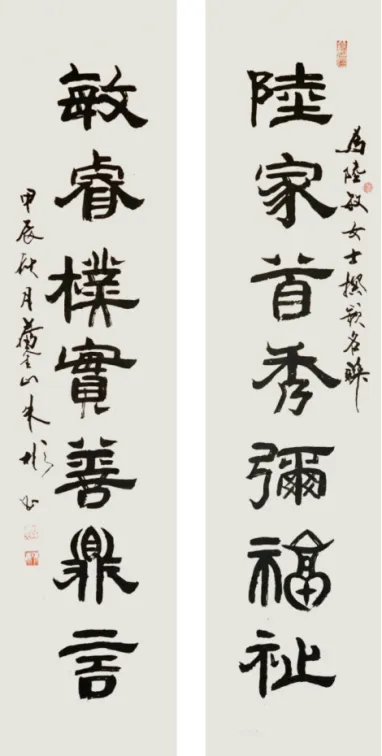 為陸敏女士撰嵌名聯
陸家首秀彌福祉
敏睿樸實善鼎言
甲辰秋月山朱彬书